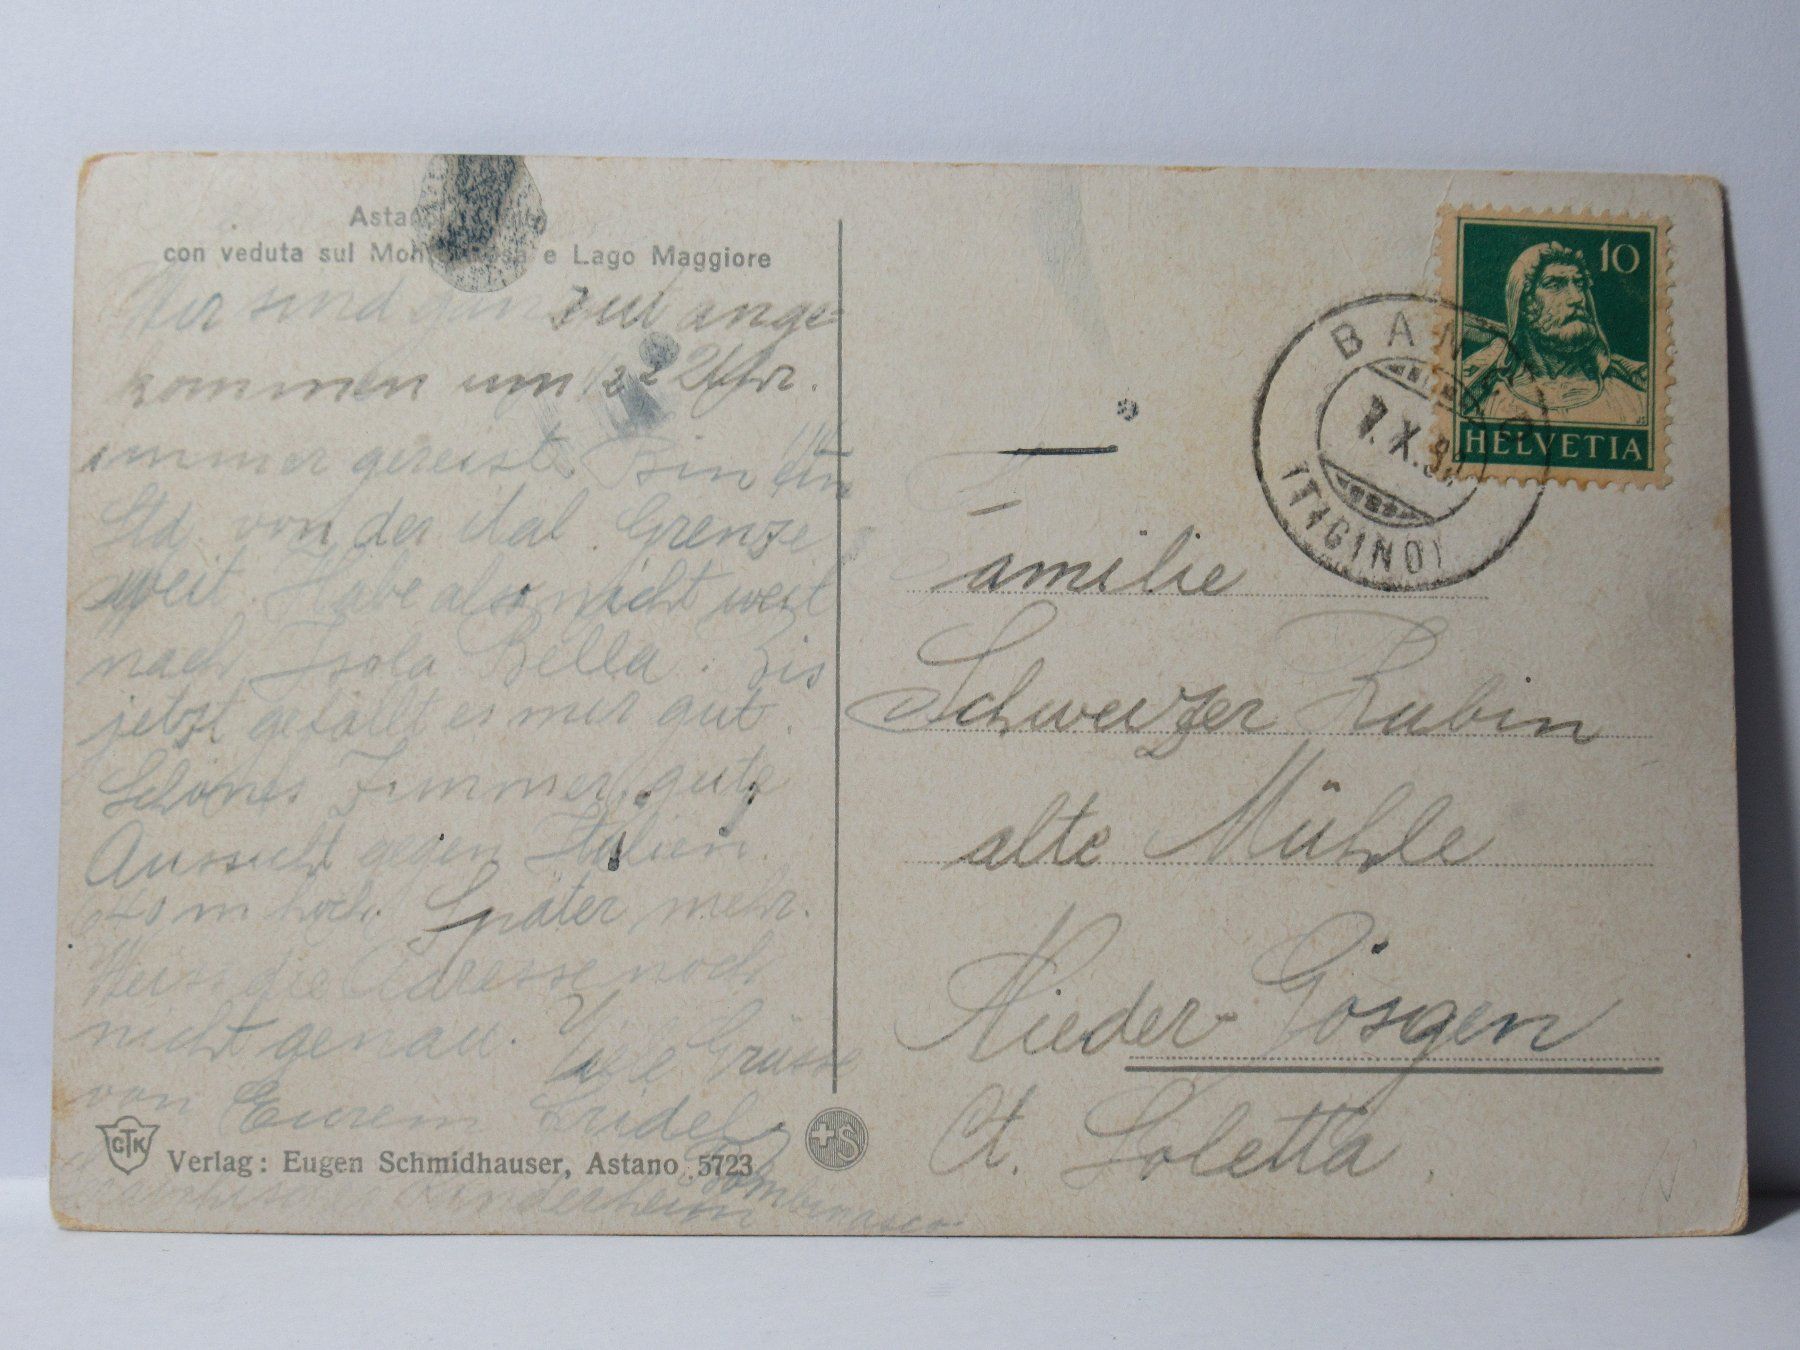 con veduta sul Monte Rosa e Lago Maggiore
Wir sind ganz gut ange-
kommen um 1/2 2 Uhr.
immer gereist. Bin ein
Std. von der ital. Grenze
weit. Habe also nicht weit
nach Isola Bella. Bis
jetzt gefällt es mir gut.
Schönes Zimmer, gute
Aussicht gegen Italien
640 m hoch. Später mehr.
Weiss die Adresse noch
nicht genau. Viele Grüsse
von Eurem
CTK
Verlag: Eugen Schmidhauser, Astano 5723
Kinderheim Bombinasco
+S
10
HELVETIA
BANCO
7.X.
(TICINO)
Familie
Schweizer Rubin
alte Mühle
Nieder-Gösgen
Ct. Soletta.